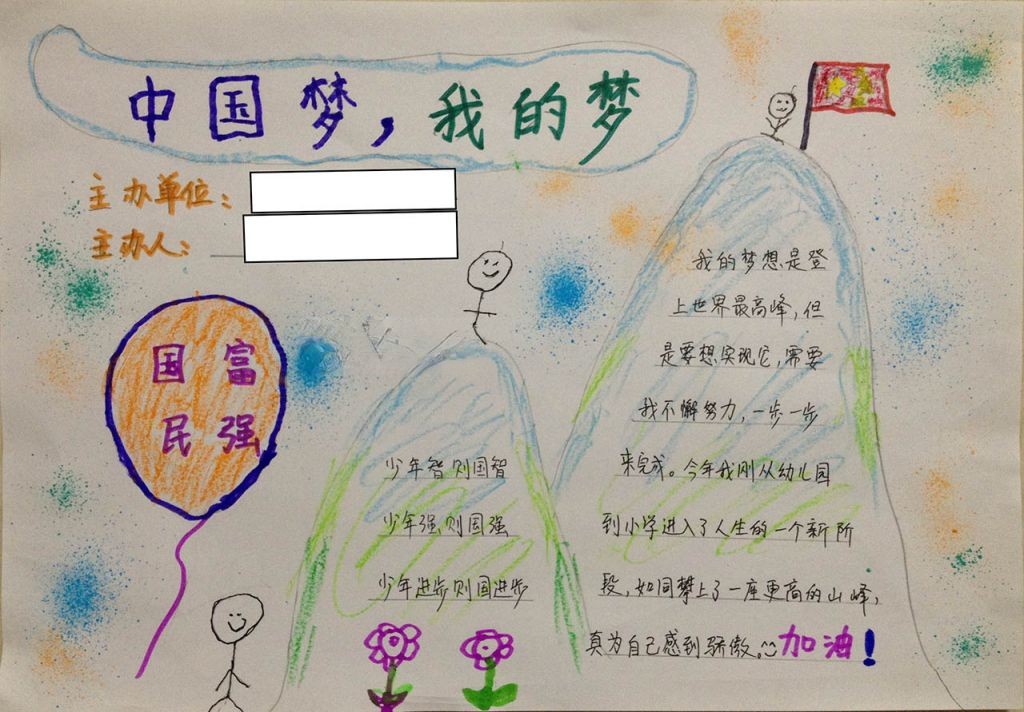 中国梦,我的梦
主办单位:
主办人:
国富
民强
少年智则国智
少年强则国强
少年进步则国进步
我的梦想是登
上世界最高峰,但
是要想实现它,需要
我不懈努力,一步一步
来完成。今年我刚从幼儿园
到小学进入了人生的一个新阶
段,如同攀上了一座更高的山峰,
真为自己感到骄傲。加油!